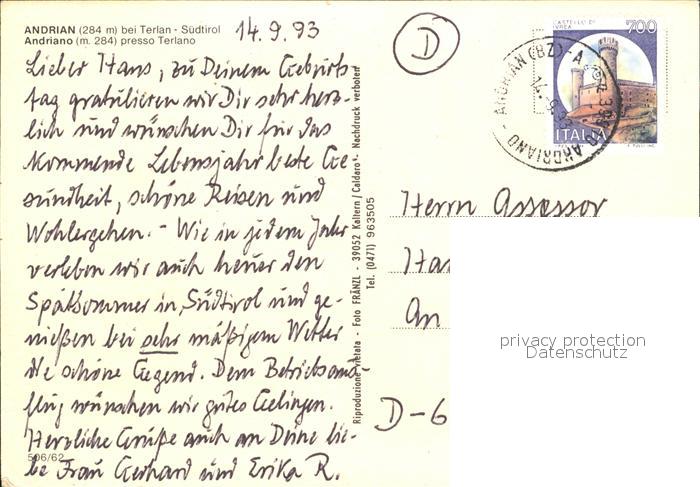 ANDRIAN (284 m) bei Terlan - Südtirol
Andriano (m. 284) presso Terlano
14.9.93
Lieber Hans, zu Deinem Geburts-
tag gratulieren wir Dir sehr herz-
lich und wünschen Dir für das
kommende Lebensjahr beste Ge-
sundheit, schöne Reisen und
Wohlergehen. - Wie in jedem Jahr
verleben wir auch heuer den
Spätsommer in Südtirol und ge-
nießen bei sehr mäßigem Wetter
die schöne Gegend. Dem Betriebsaus-
flug wünschen wir gutes Gelingen.
Herzliche Grüße auch an Deine lie-
be Frau Gerhard und Erika R.
506/62
Riproduzione vietata - Foto FRÄNZL - 39052 Kaltern / Caldaro - Nachdruck verboten
Tel. (0471) 963505
D
CASTELLO DI
IVREA
700
ITALIA
ANDRIANO - ANDRIAN (BZ) - A
14.9.93
Herrn Assessor
Ha
An
D-6
privacy protection
Datenschutz